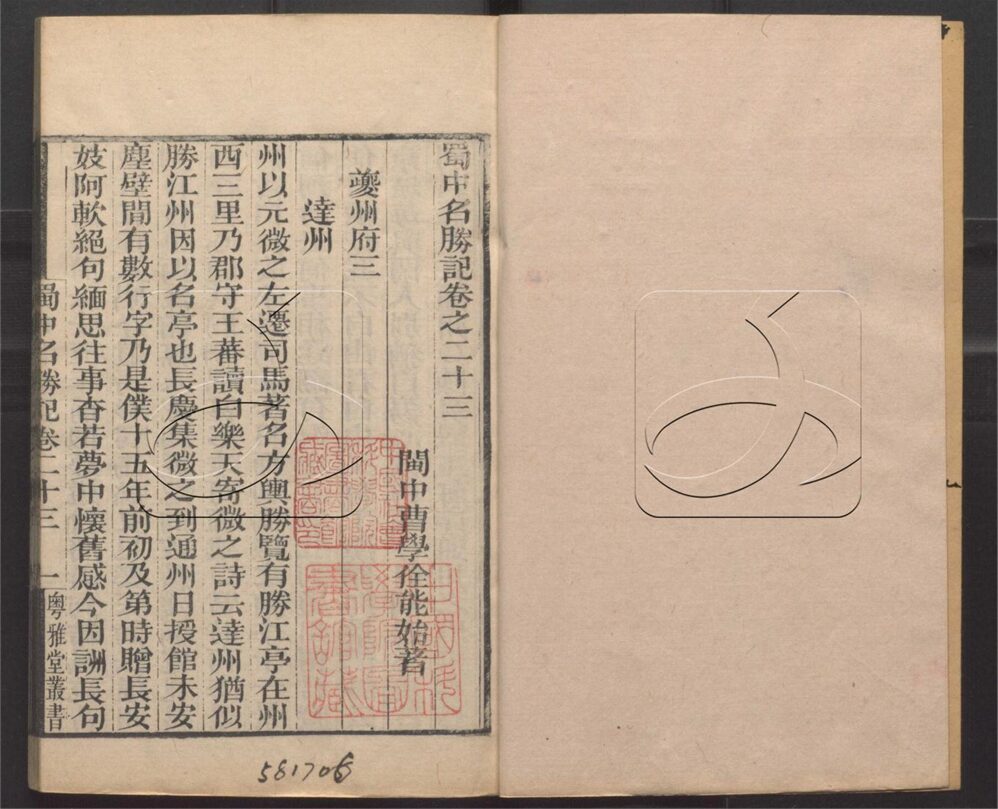 蜀中名勝記卷之二十三
閩中曹學佺能始著
夔州府三
達州
州以元微之左遷司馬著名方輿勝覽有勝江亭在州
西三里乃郡守王蕃讀白樂天寄微之詩云達州猶似
勝江州因以名亭也長慶集微之到通州日授館未安
塵壁間有數行字乃是僕十五年前初及第時贈長安
妓阿軟絕句緬思往事杳若夢中懷舊感今因詶長句
蜀中名勝記卷二十三 一 粵雅堂叢書
581706